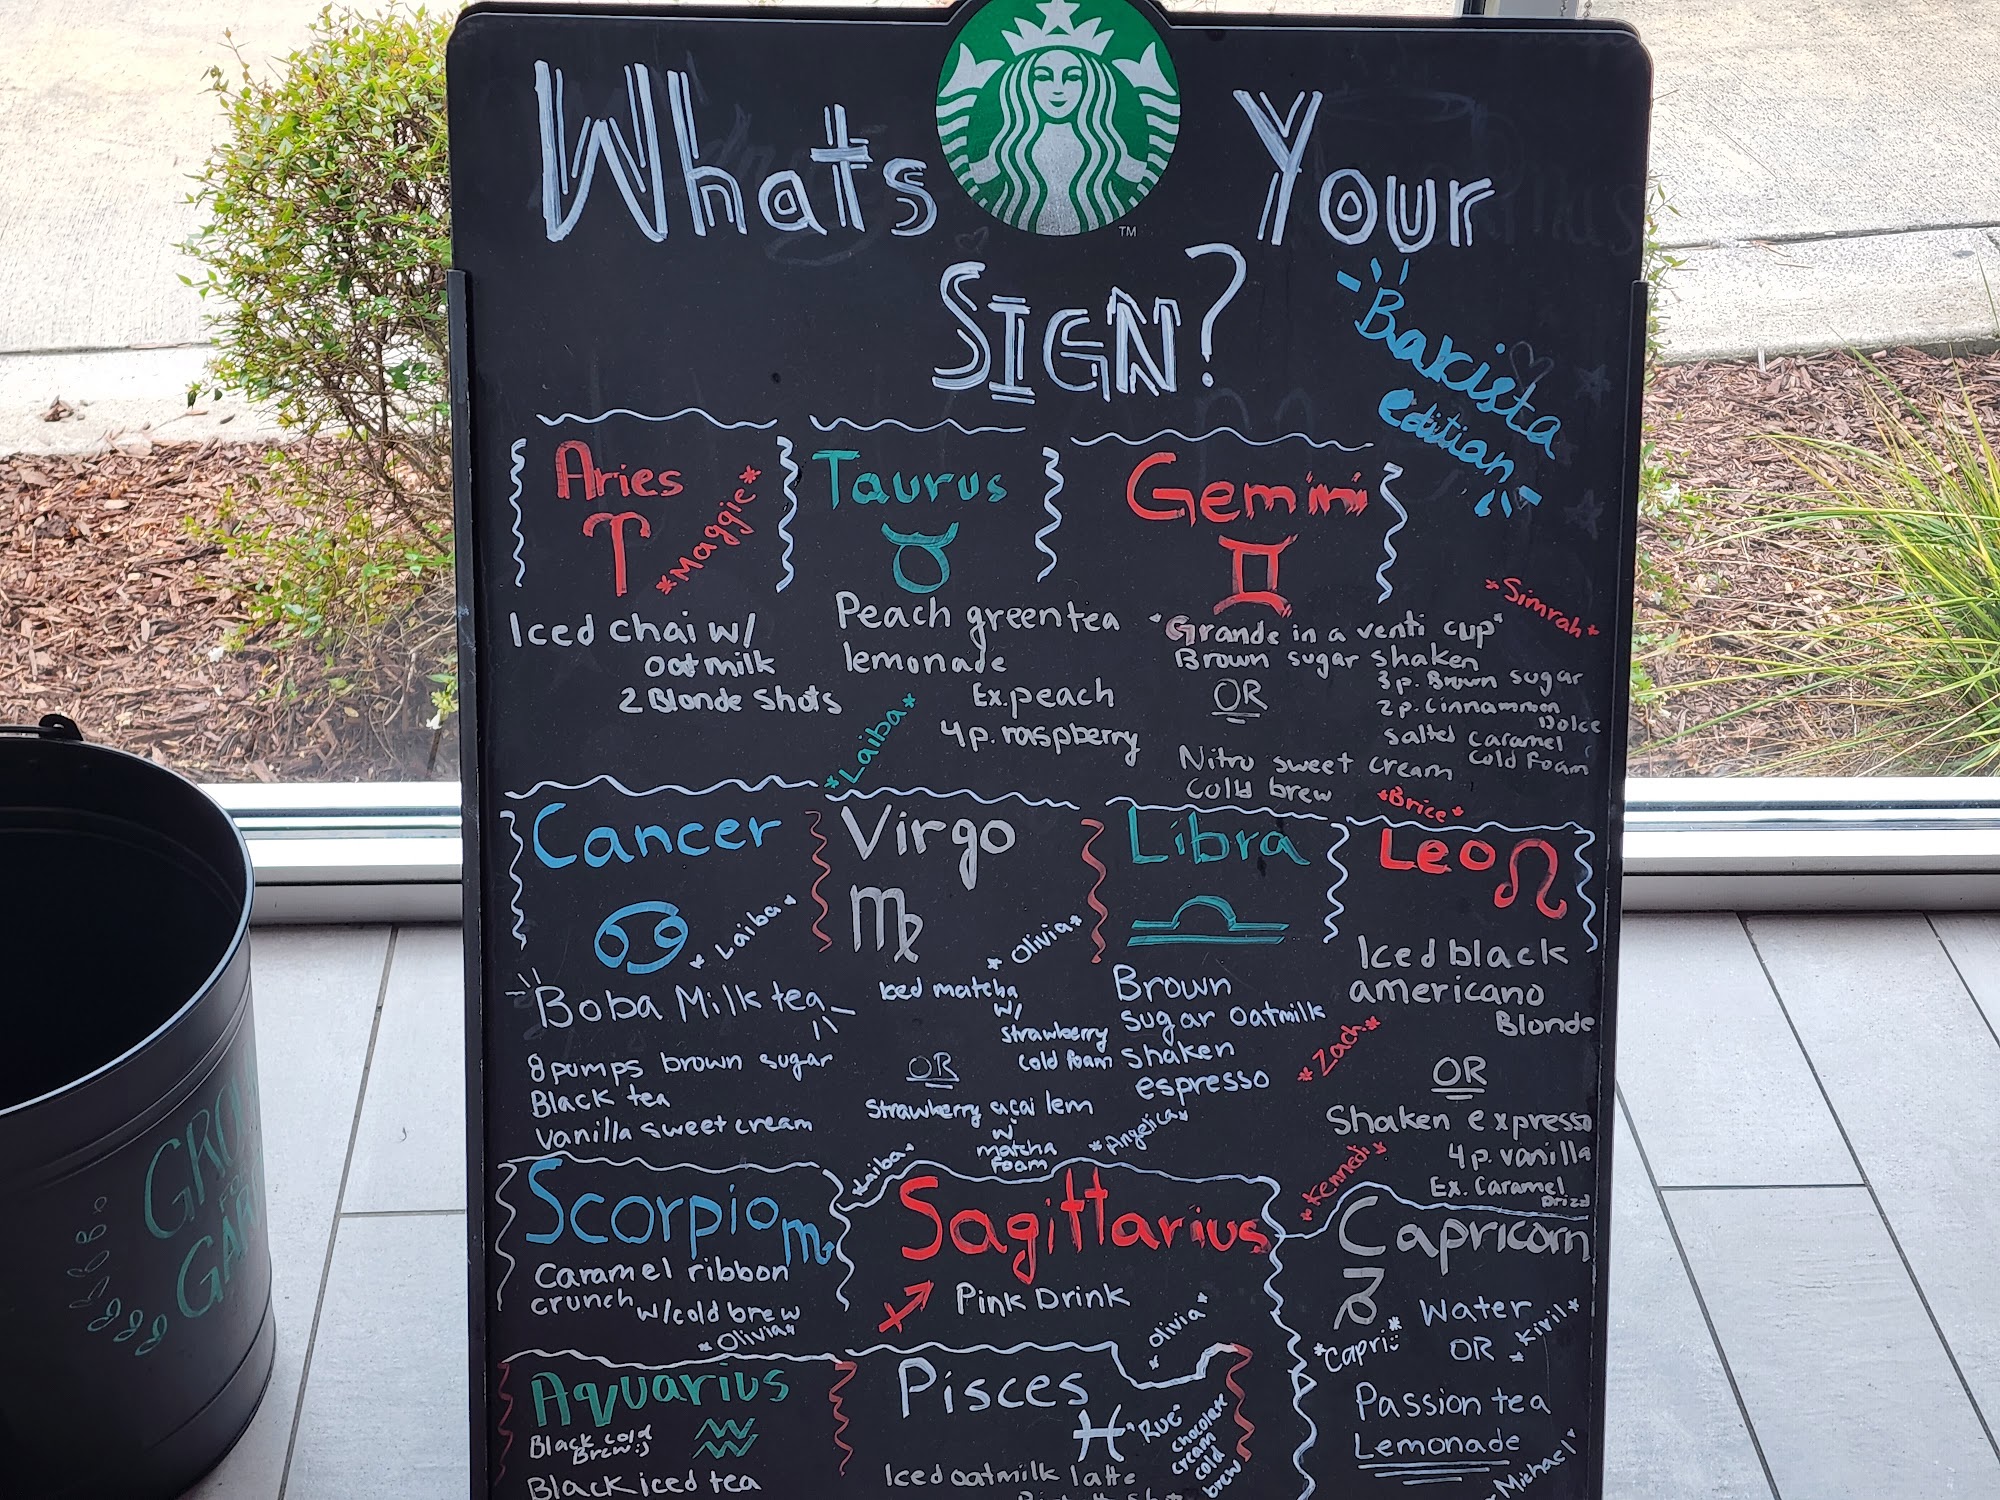 Whats Your
SIGN?
Barista
edition
Aries
*Maggie*
Iced chai w/
oatmilk
2 Blonde shots
Taurus
Peach green tea
lemonade
Ex. peach
4 p. raspberry
*Laiba*
Gemini
*Simrah*
"Grande in a venti cup"
Brown sugar shaken
3 p. Brown sugar
2 p. Cinnammon
Dolce
salted caramel
cold foam
OR
Nitro sweet cream
cold brew
*Brice*
Cancer
*Laiba*
Boba Milk tea
8 pumps brown sugar
Black tea
Vanilla sweet cream
Virgo
*Olivia*
Iced matcha
w/
strawberry
cold foam
OR
Strawberry acai lem
w/
matcha
foam
*Laiba*
Libra
Brown
sugar oatmilk
shaken
espresso
*Angelica*
Leo
Iced black
americano
Blonde
*Zach*
OR
Shaken expresso
4 p. vanilla
Ex. Caramel
Drizz
*Kennedi*
Scorpio
Caramel ribbon
crunch w/cold brew
*Olivia*
Sagittarius
Pink Drink
*Olivia*
Capricorn
Water
*Capri*
OR
*Kivil*
Passion tea
Lemonade
*Michael*
Aquarius
Black cold
Brew :)
Black iced tea
Pisces
"Rue"
chocolate
cream
cold
brew
Iced oatmilk latte
GROW
FO
GAR
TM